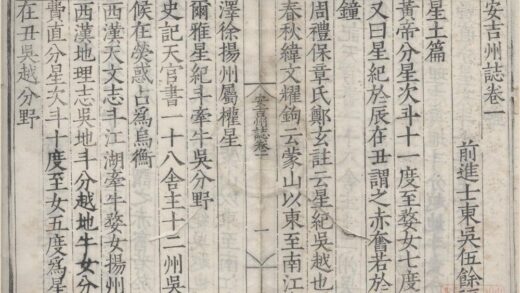 安吉州誌卷一
前進士東吳伍餘
星土篇
黃帝分星次斗十一度至婺女七度
又曰星紀於辰在丑謂之赤奮若於
鐘
周禮保章氏鄭玄註云星紀吳越也
春秋緯文耀鉤云蒙山以東至南江
安吉州誌卷一
一
澤徐揚州屬權星
爾雅星紀斗牽牛吳分野
史記天官書一十八舍主十二州吳
候在熒惑占為鳥衡
西漢天文志斗江湖牽牛婺女揚州
西漢地理志吳地斗分越地牛女分
費直分星次斗十度至女五度為星
在丑吳越分野